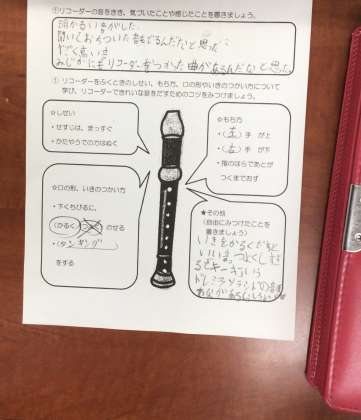 ①リコーダーの音をきき、気づいたことや感じたことを書きましょう。
明かるい音がした
聞いておちついた音もでるんだなと思った
すごく高い音
みじかにもリコーダーをつかった曲があるんだなと思った
① リコーダーをふくときのしせい、もち方、口の形やいきのつかい方について
学び、リコーダーできれいな音をだすためのコツをみつけましょう。
☆しせい
・せすじは、まっすぐ
・かたやうでの力はぬく
☆もち方
・(左)手 が上
・(右)手 が下
・指のはらであとが
つくまでおす
☆口の形、いきのつかい方
・下くちびるに、
(かるく) のせる
・(タンギング)
をする
★その他
(自由にみつけたことを
書きましょう)
いきをかるくだすと
いい音、つよくし
るとキーキーいう
ドレミファソラシドの音